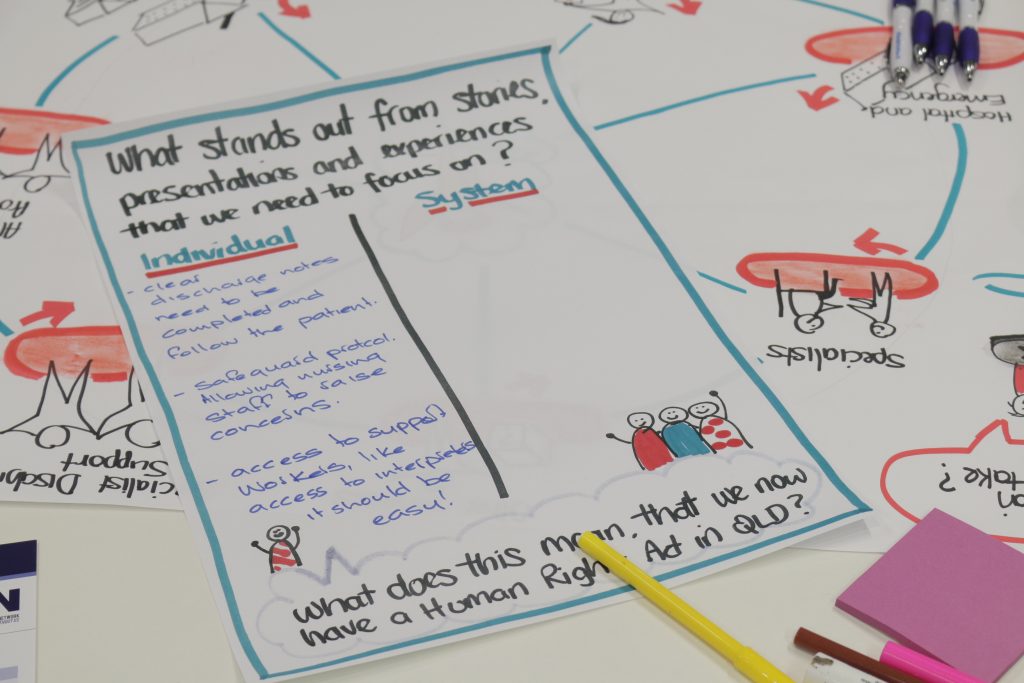 What stands out from stories.
presentations and experiences
that we need to focus on?
Individual
System
- clear
discharge notes
need to be
completed and
follow the patient.
- Safeguard protcol.
Allowing nursing
staff to raise
concerns.
- access to support
workers, like
access to interpreters
it should be
easy!
What does this mean that we now
have a Human Rights Act in QLD?
Hospital and
Emergency
Specialists
Support
take?
NETWORK